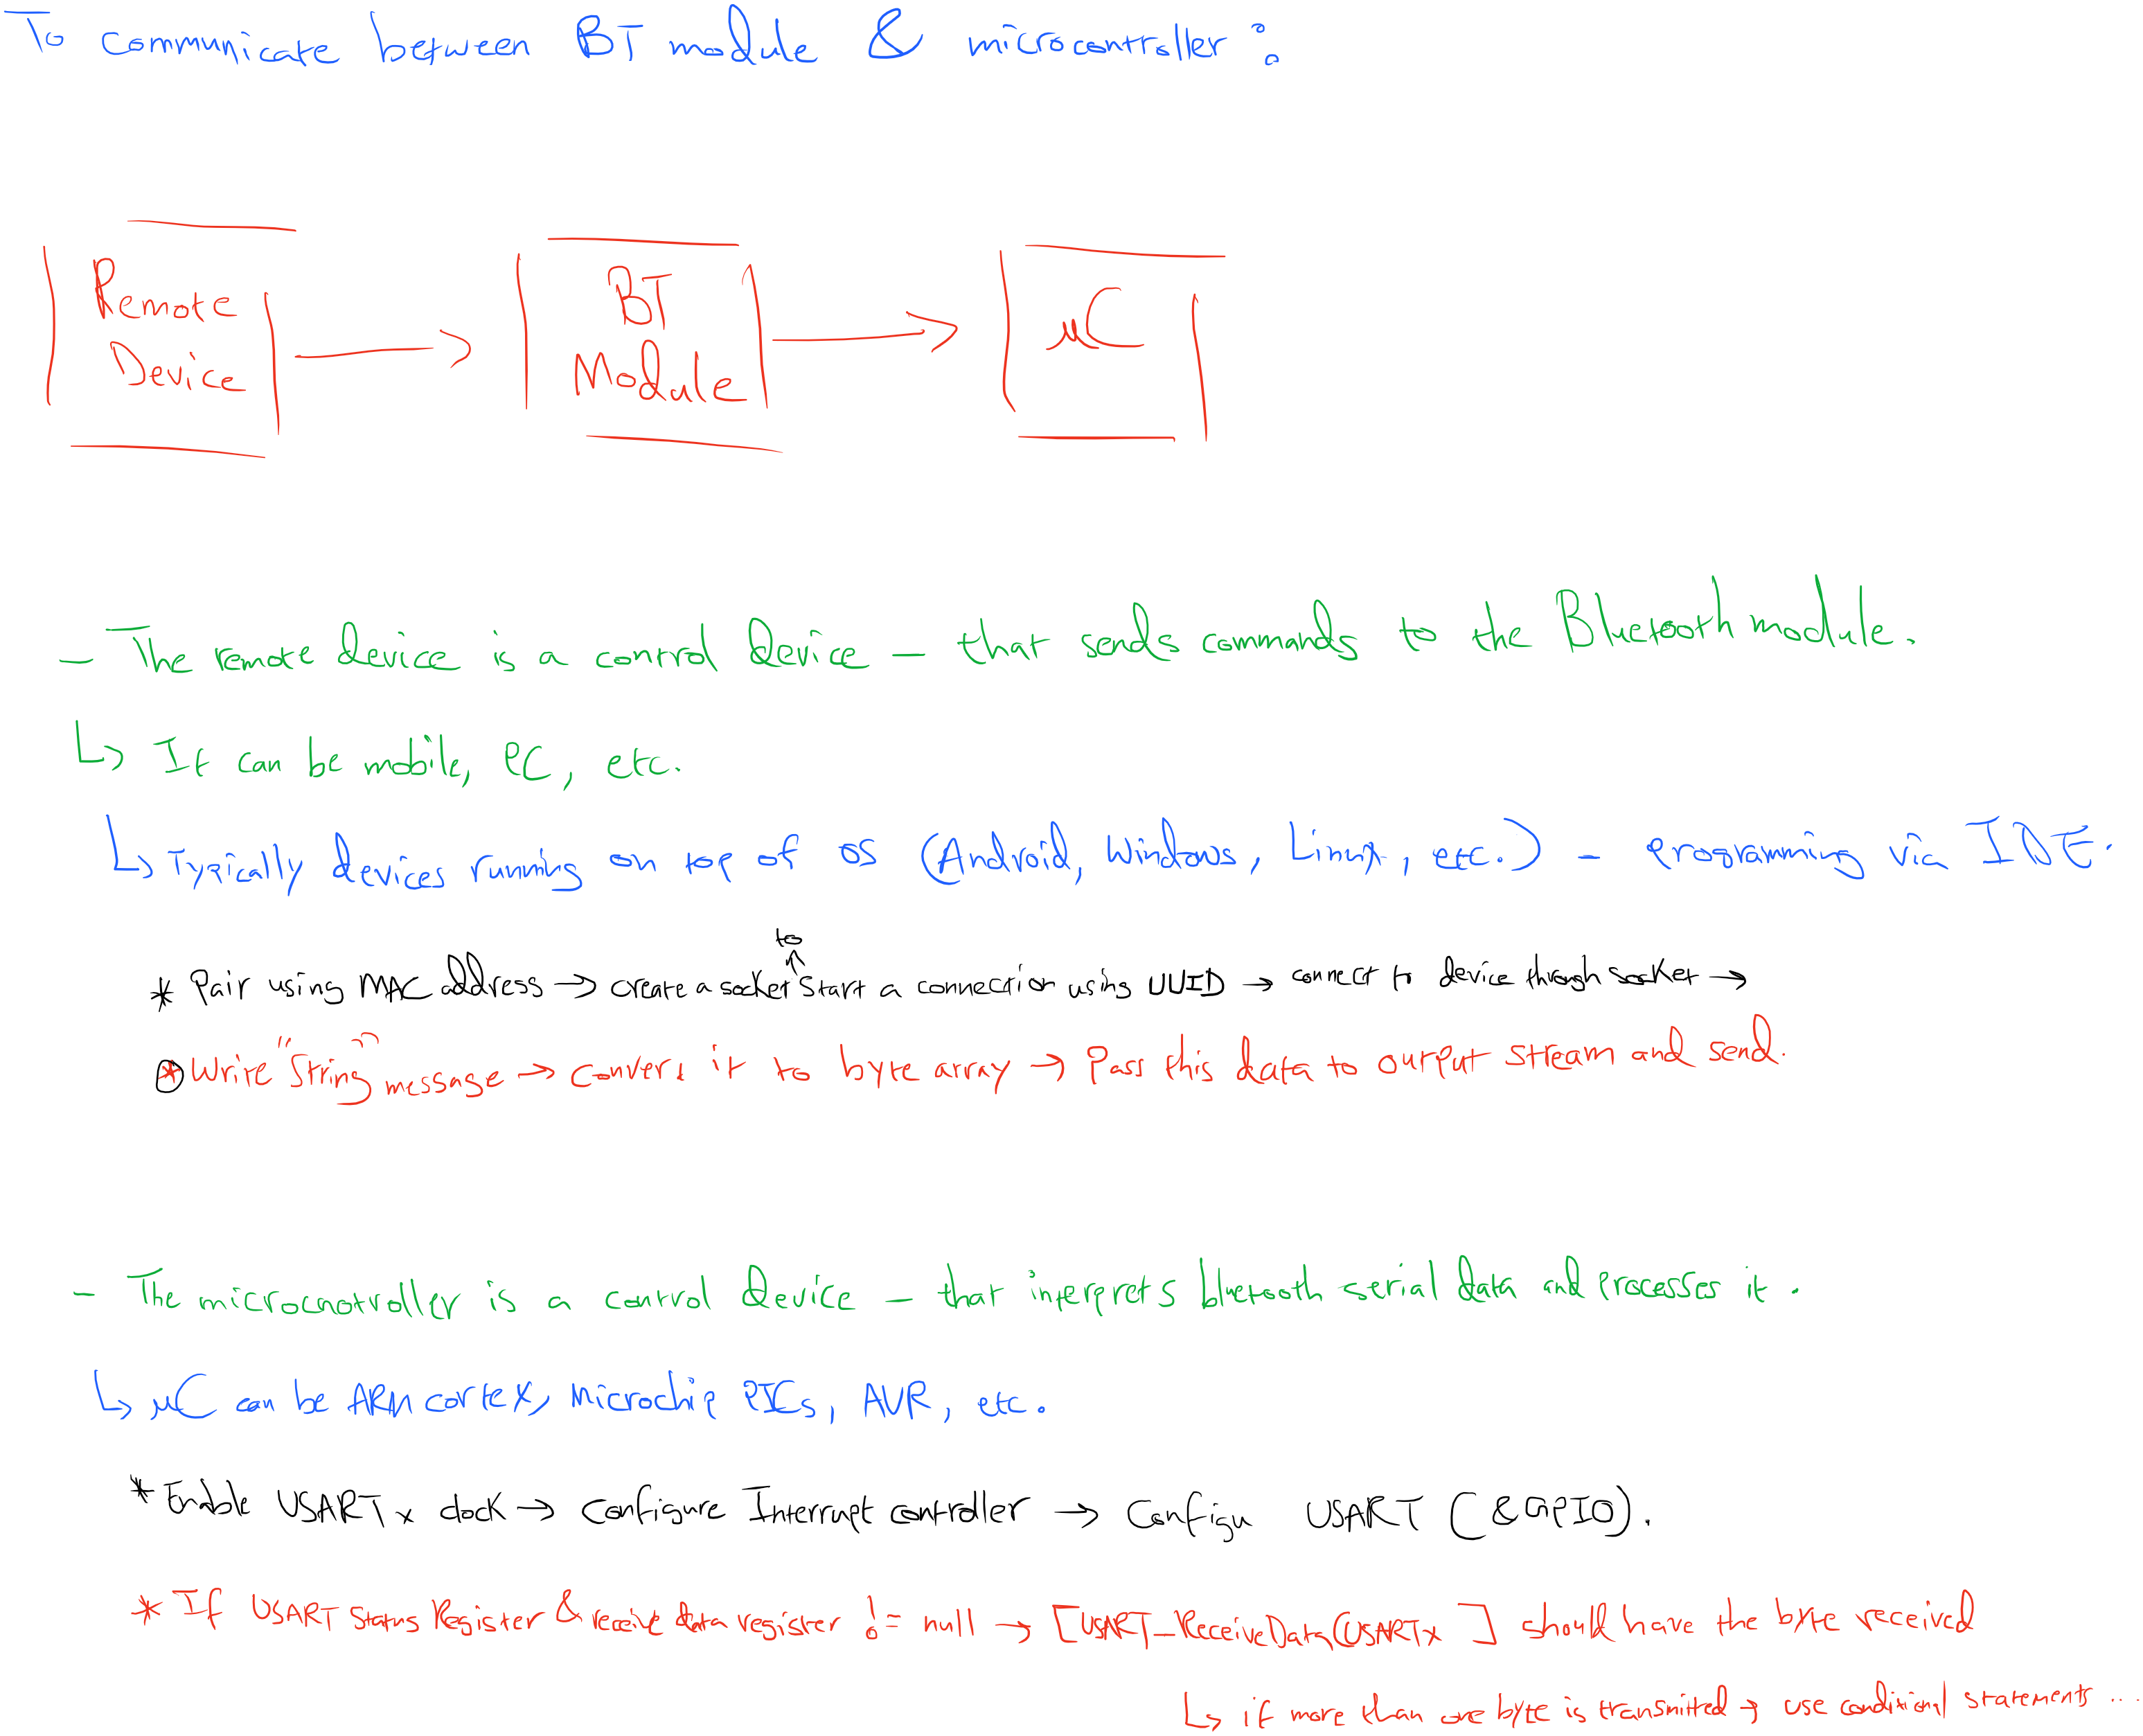 To communicate between BT module & microcontroller :
Remote
Device
BT
Module
μC
- The remote device is a control device - that sends commands to the Bluetooth module.
↳ It can be mobile, PC, etc.
↳ Typically devices running on top of OS (Android, Windows, Linux, etc.) - Programming via IDE.
to
* Pair using MAC address → create a socket ^ start a connection using UUID → connect to device through socket →
* Write "String" message → convert it to byte array → Pass this data to output stream and send.
- The microcnotroller is a control device - that interprets bluetooth serial data and processes it.
↳ μC can be ARM cortex, Microchip PICs, AVR, etc.
* Enable USARTx clock → configure Interrupt controller → Configu USART (& GPIO).
* If USART Status Register & receive data register != null → [USART_ReceiveData(USARTx ] should have the byte received
↳ if more than one byte is transmitted → use conditional statements ...